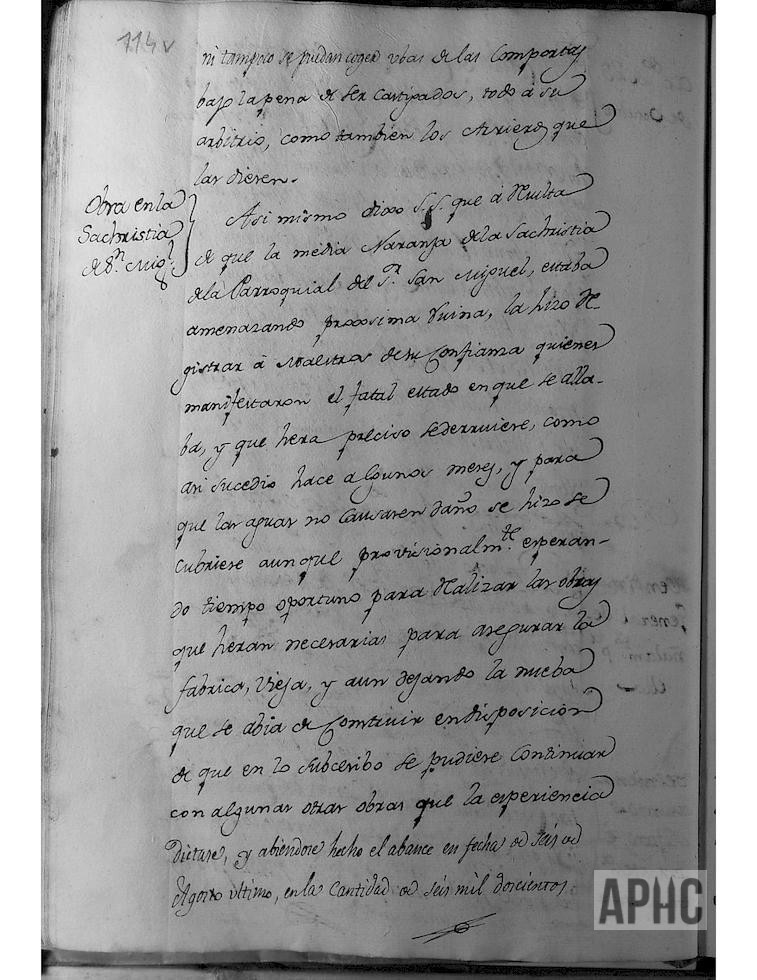 114v
ni tampoco se puedan coger ubas de las Comportas
bajo la pena de ser castigados, todo á su
arbitrio, como tambien los Arrieros que
las dieren.
Obra en la
Sachristia
de Sn. Migl.
Asi mismo dixo S.S. que á Resulta
de que la media Naranja de la Sachristia
de la Parroquial del Sr. San Miguel, estaba
amenazando proxsima Ruina, la hizo Re-
gistrar á Maestros de su Confianza quienes
manifestaron el fatal estado en que se alla-
ba, y que hera preciso sederruiere, como
asi sucedio hace algunos meses, y para
que las aguas no Causasen daño se hizo se
cubriese aunque provisionalmte. esperan-
do tiempo oportuno para Realizar las obras
que heran necesarias para asegurar la
fabrica, Vieja, y aun dejando la nueba
que se abia de Construir en disposicion
de que en lo subcesibo se pudiese Continuar
con algunas otras obras que la esperiencia
Dictase, y abiendose hecho el abance en fecha de seis de
Agosto ultimo, en la Cantidad de seis mil doscientos
APHC